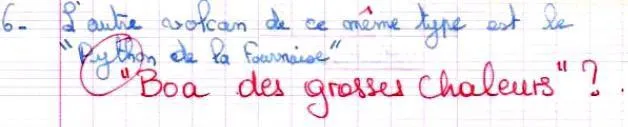 6- L'autre volcan de ce même type est le
"Python de la Fournaise"
"Boa des grosses chaleurs" ?